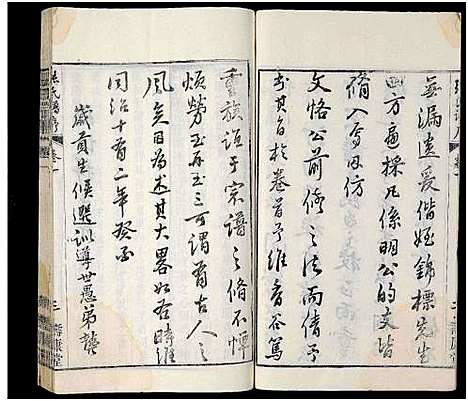 無漏遠爰偕姪錦標先生
四方遍採凡係明公的支皆
脩入焉因仿
文恪公前脩之法而倩予
書其旨於卷首予維香谷篤
重族誼于宗譜之脩不憚
煩勞至再至三可謂有古人之
風矣因為述其大畧如右時維
同治十有二年癸酉
歲貢生候選訓導世愚弟
氏譜序
卷一
三
壽康堂